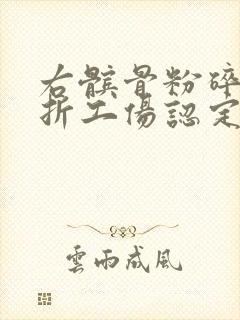 右髌骨粉碎
折工傷認定
雲雨成風